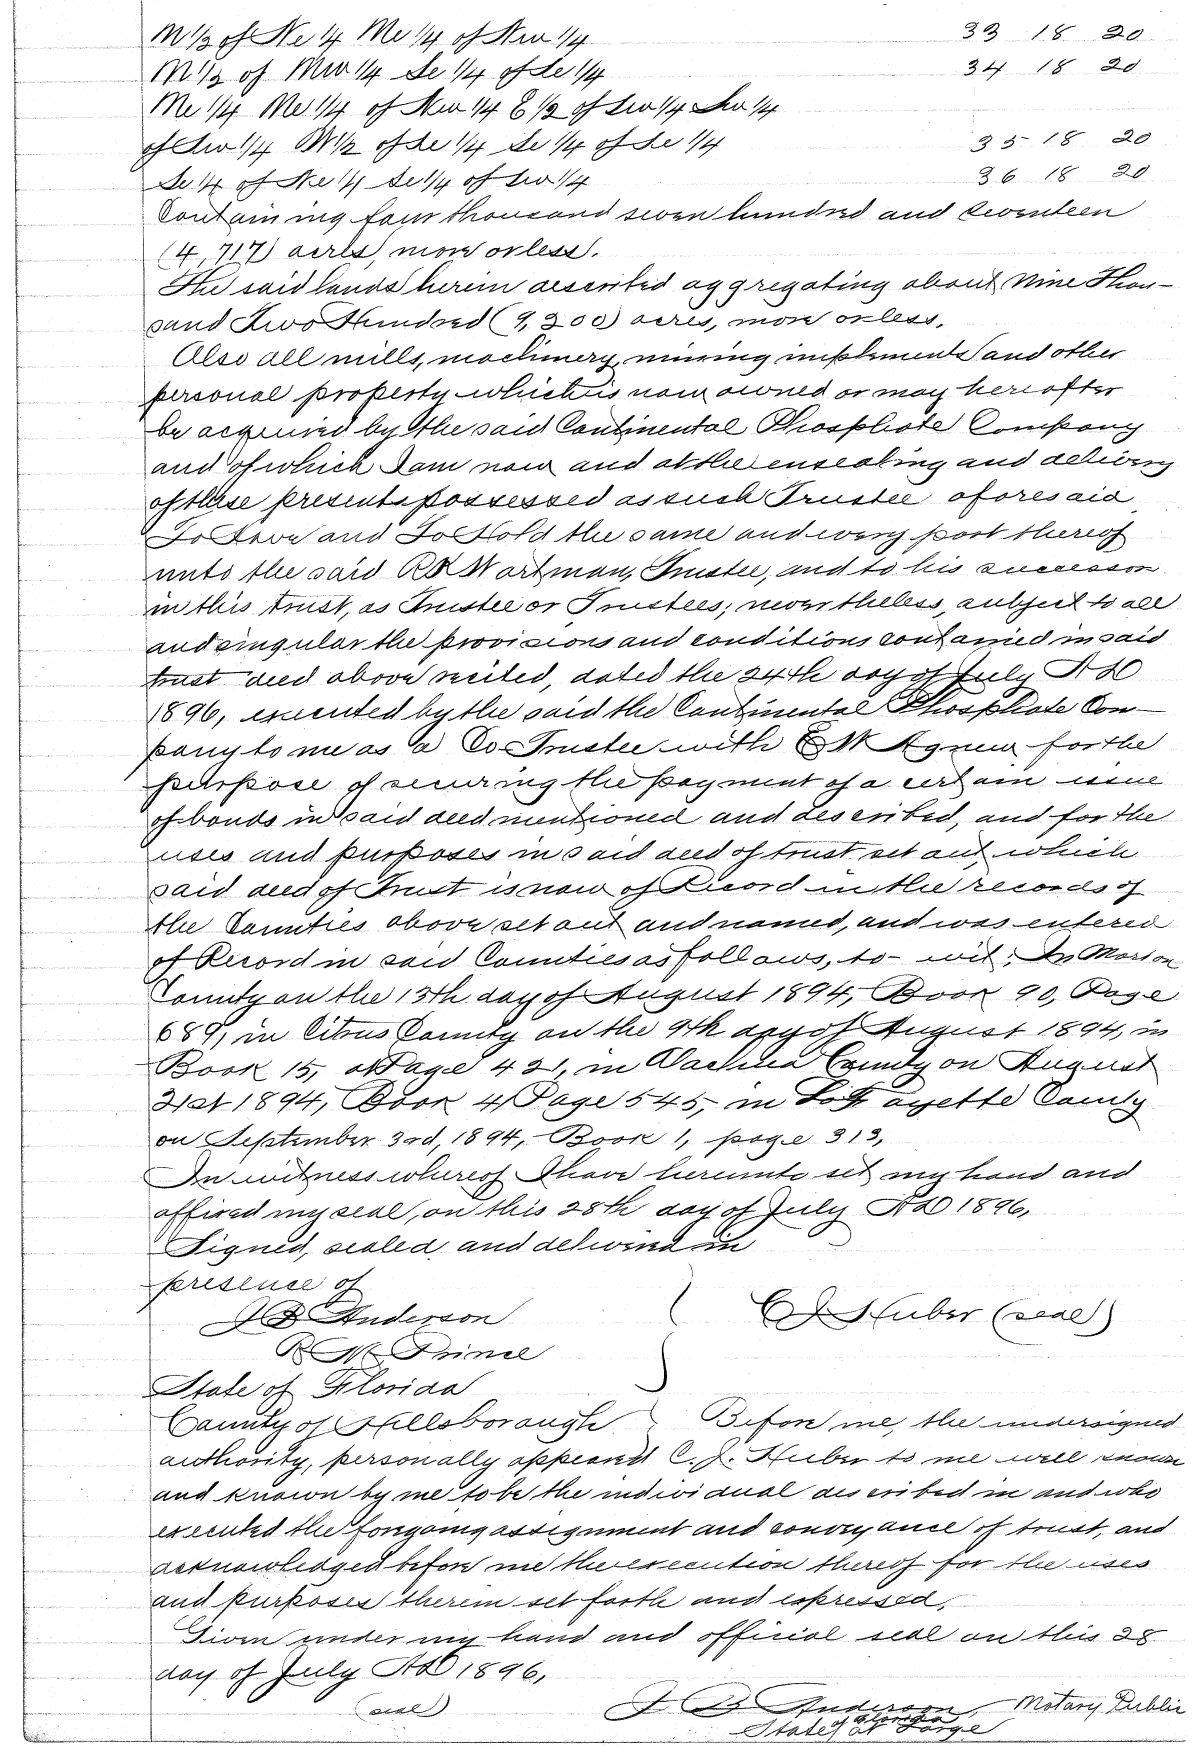 N 1/2 of Ne 1/4 Ne 1/4 of Nw 1/4 33 18 20
N 1/2 of Nw 1/4 Se 1/4 of Se 1/4 34 18 20
Ne 1/4 Ne 1/4 of Nw 1/4 E 1/2 of Sw 1/4 Sw 1/4
of Sw 1/4 W 1/2 of Se 1/4 Se 1/4 of Se 1/4 35 18 20
Se 1/4 of Ne 1/4 Se 1/4 of Sw 1/4 36 18 20
Containing four thousand seven hundred and seventeen
(4,717) acres, more or less.
The said lands herein described aggregating about Nine Thou-
sand Two Hundred (9,200) acres, more or less,
Also all mills, machinery, mining implements and other
personal property which is now owned or may hereafter
be acquired by the said Continental Phosphate Company
and of which I am now and at the ensealing and delivery
of these presents possessed as such Trustee aforesaid
To Have and To Hold the same and every part thereof
unto the said R B Wartman, Trustee, and to his successors
in this trust, as Trustee or Trustees; nevertheless, subject to all
and singular the provisions and conditions contained in said
trust deed above recited, dated the 24th day of July A D
1896, executed by the said the Continental Phosphate Com-
pany to me as a Co-Trustee with E W Agnew for the
purpose of securing the payment of a certain issue
of bonds in said deed mentioned and described, and for the
uses and purposes in said deed of trust set out which
said deed of Trust is now of Record in the records of
the Counties above set out and named, and was entered
of Record in said Counties as follows, to-wit; In Marion
County on the 13th day of August 1894, Book 90, Page
689, in Citrus County on the 9th day of August 1894, in
Book 15, at Page 421, in Alachua County on August
31st 1894, Book 4, Page 545, in La Fayette County
on September 3rd, 1894, Book 1, page 313,
In witness whereof I have hereunto set my hand and
affixed my seal, on this 28th day of July A D 1896,
Signed, sealed and delivered in
presence of
J B Anderson C J Huber (seal)
R M Prince
State of Florida
County of Hillsborough Before me, the undersigned
authority, personally appeared C. J. Huber to me well known
and known by me to be the individual described in and who
executed the foregoing assignment and conveyance of trust, and
acknowledged before me the execution thereof for the uses
and purposes therein set forth and expressed,
Given under my hand and official seal on this 28
day of July A D 1896,
(seal) J B Anderson, Notary Public
State of Florida at Large